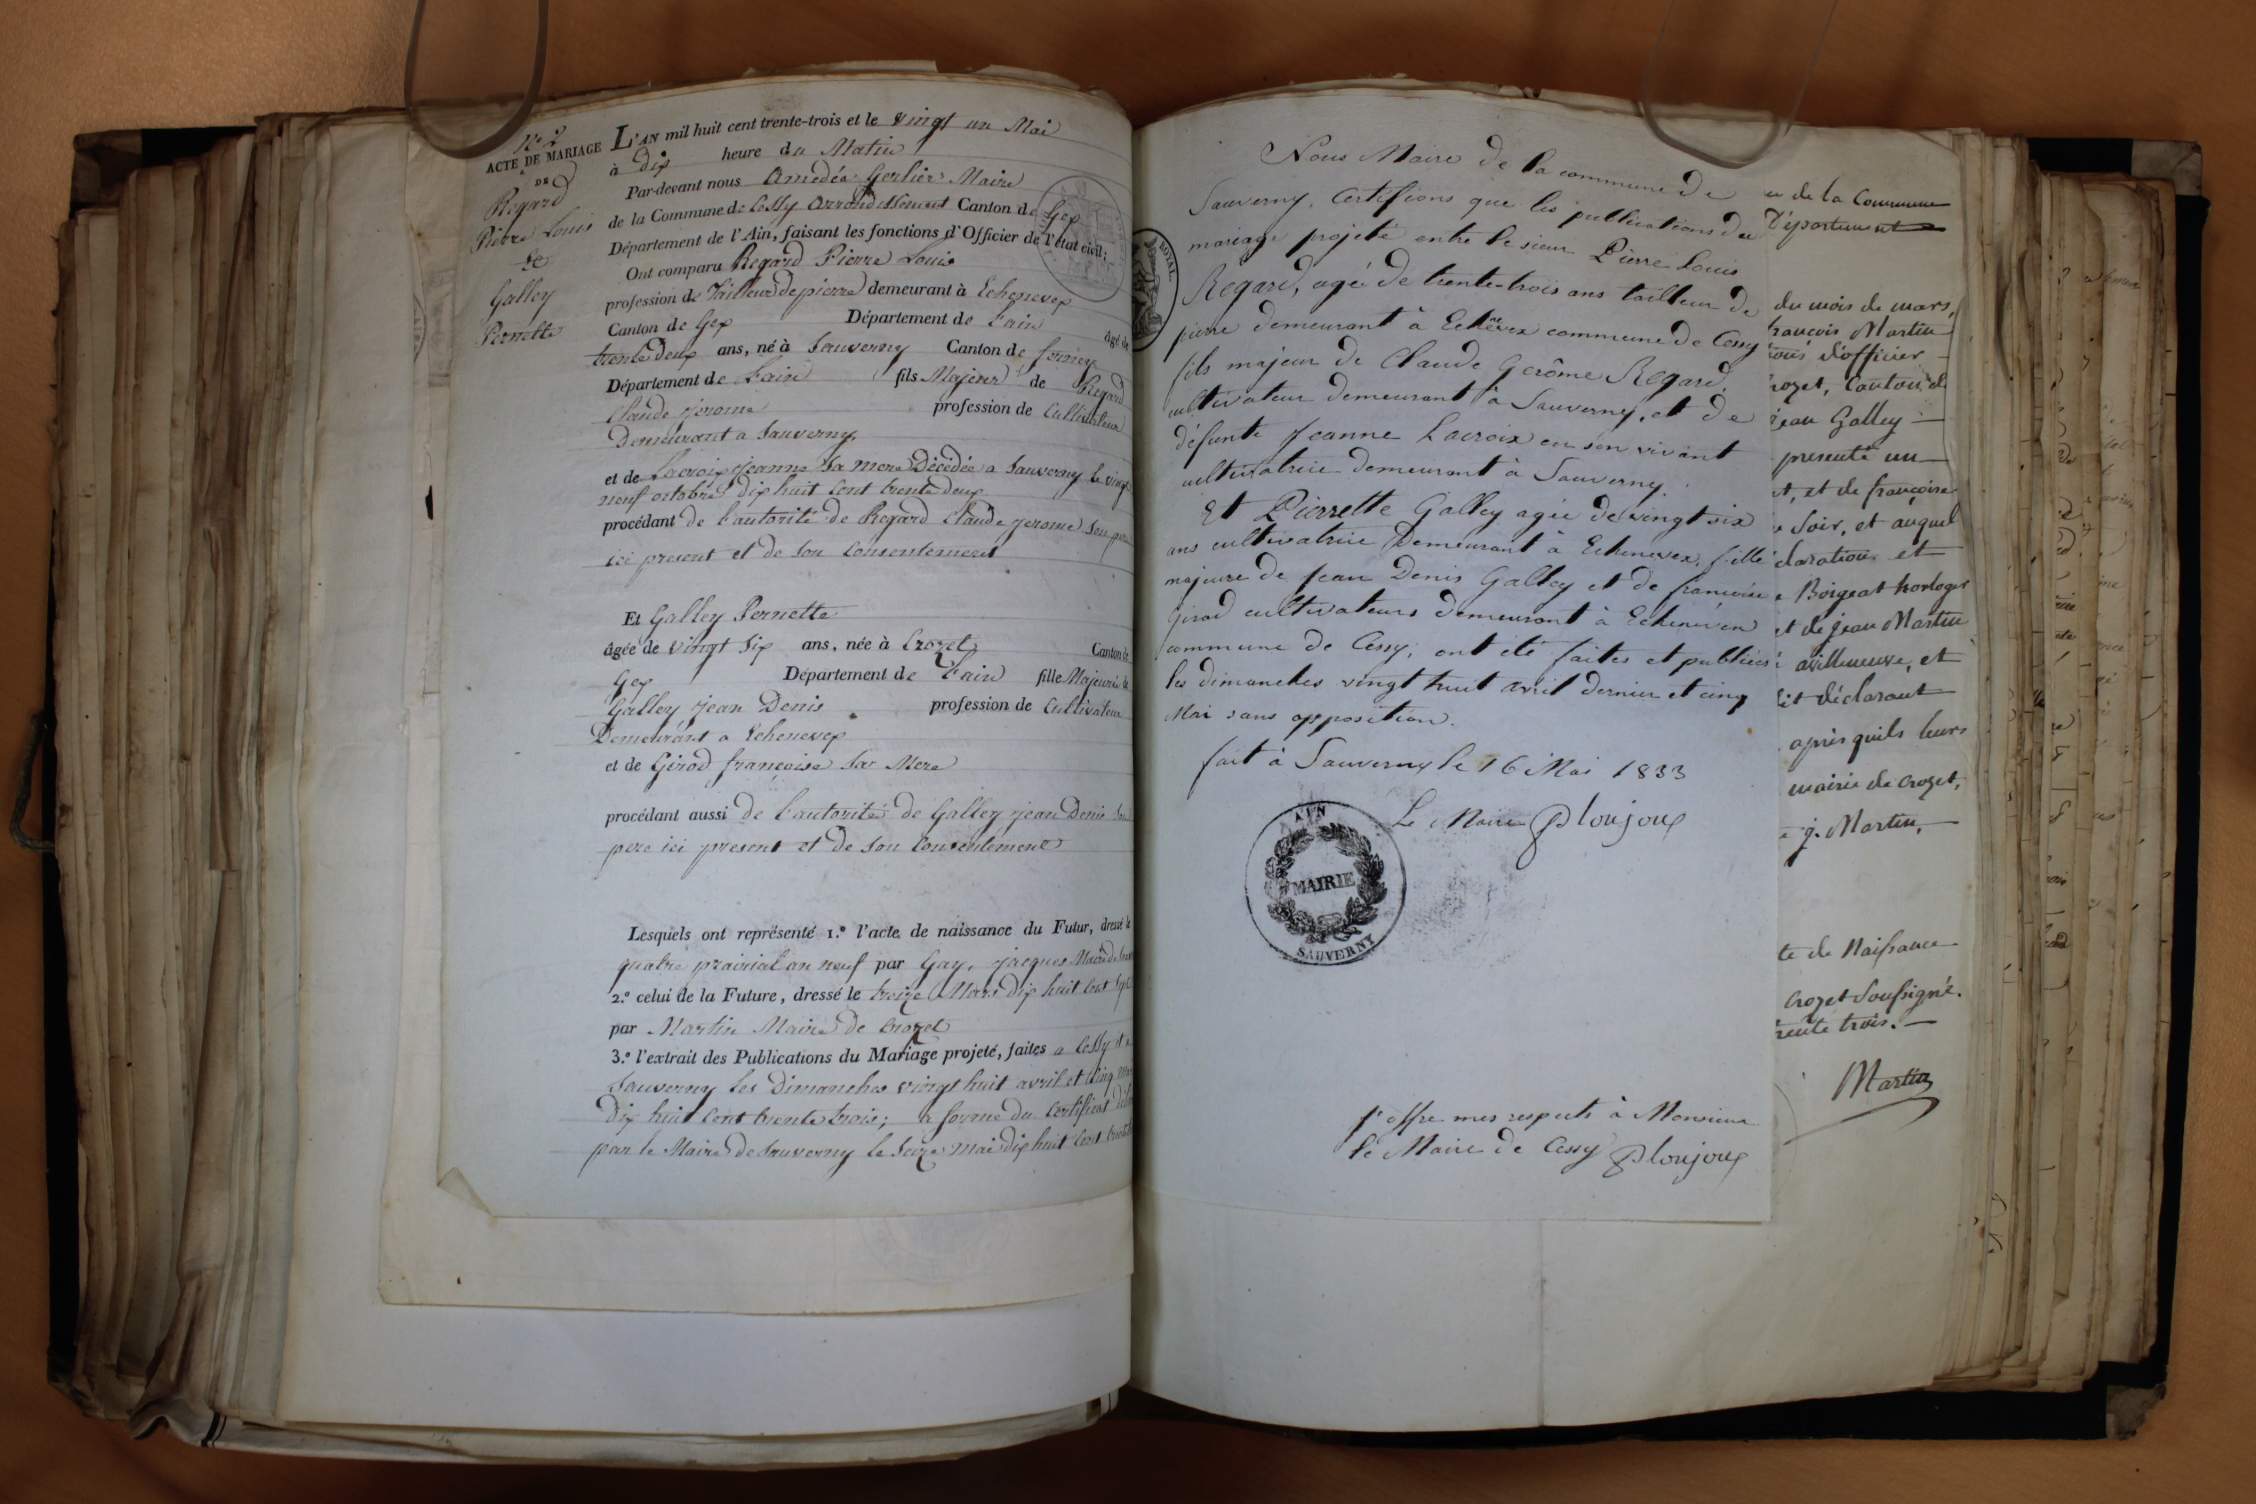 N.o 2
ACTE DE MARIAGE
DE
Regard
Pierre Louis
Galley
Pernette
L'AN mil huit cent trente-trois et le vingt un Mai
à dix heure du Matin
Par-devant nous Amedéa Gerlier Maire
de la Commune de Cessy Arrondissement Canton de Gex
Département de l'Ain, faisant les fonctions d'Officier de l'état civil;
Ont comparu Regard Pierre Louis
profession de Tailleur de pierre demeurant à Echenevex
Canton de Gex Département de L'ain âgé de
trente deux ans, né à Sauverny Canton de ferney
Département de L'ain fils Majeur de Regard
Claude jerome profession de Cultivateur
Demeurant a Sauverny,
et de Lacroix Jeanne Sa mere Décédée a Sauverny le vingt
neuf octobre dix huit cent trente deux
procédant de l'autorité de Regard Claude jerome Son pere
ici present et de Son Consentement
Et Galley Pernette
âgée de vingt Six ans, née à Crozet Canton de
Gex Département de L'ain fille Majeure de
Galley jean Denis profession de Cultivateur
Demeurant a Echenevex
et de Girod françoise Sa Mere
procédant aussi de l'autorité de Galley jean Denis Son
pere ici present et de Son Consentement
Lesquels ont représenté 1.o l'acte de naissance du Futur, dressé le
quatre prairial an neuf par Gay, jacques Maire de
2.o celui de la Future, dressé le treize Mars dix huit cent Sept
par Martin Maire de Crozet
3.o l'extrait des Publications du Mariage projeté, faites a Cessy et a
Sauverny les Dimanches vingt huit avril et Cinq Mai
Dix huit Cent trente trois; a forme du Certificat
par le Maire de Sauverny le Seize Mai dix huit Cent trente
ROYAL
Nous Maire de la commune de
Sauverny, Certifions que les publications du
mariage projeté entre le sieur Pierre Louis
Regard, agé de trente-trois ans tailleur de
pierre demeurant à Echenevex commune de Cessy
fils majeur de Claude Gerôme Regard,
cultivateur demeurant à Sauverny, et de
défunte Jeanne Lacroix en son vivant
cultivatrice demeurant à Sauverny.
Et Pierrette Galley agée de vingt six
ans cultivatrice Demeurant à Echenevex, fille
majeure de Jean Denis Galley et de françoise
Girod cultivateurs demeurant à Echenevex
commune de Cessy; ont été faites et publiées
les dimanches vingt huit avril dernier et cinq
Mai sans opposition.
fait à Sauverny le 16 Mai 1833
Le Maire Ploujoux
AIN
MAIRIE
SAUVERNY
j'offre mes respects à Monsieur
le Maire de Cessy Ploujoux
de la Commune
Département
du mois de mars,
françois Martin
d'officier
Crozet, Canton de
jean Galley
presenté un
et de françoise
Soir, et auquel
déclaration et
Boigeat horloger
et de jean Martin
avilleneuve, et
dit déclarant
après quils leurs
mairie de crozet,
j. Martin,
te de Naissance
Crozet Soussigné.
trente trois.
Martin